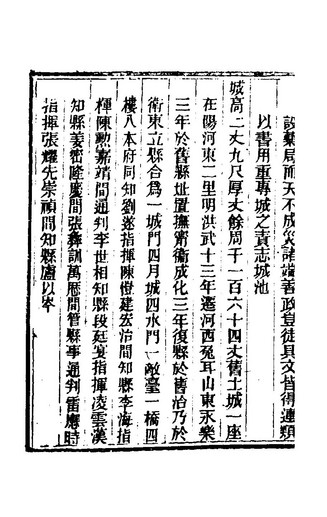 設藥局而天不成災諸端善政豈徒具文皆得連類
以書用重專城之責志城池
城高二丈九尺厚丈餘周千一百六十四丈舊土城一座
在陽河東二里明洪武十三年遷河西兔耳山東永樂
三年於舊縣址置撫甯衛成化三年復縣於舊治乃於
衛東立縣合爲一城門四月城四水門一敵臺一橋四
樓八本府同知劉遂指揮陳愷建弘治間知縣李海指
揮陳勲嘉靖間通判李世相知縣段廷宴指揮凌雲漢
知縣姜密隆慶間張彝訓萬厯間管縣事通判雷應時
指揮張耀先崇禎間知縣盧以岑